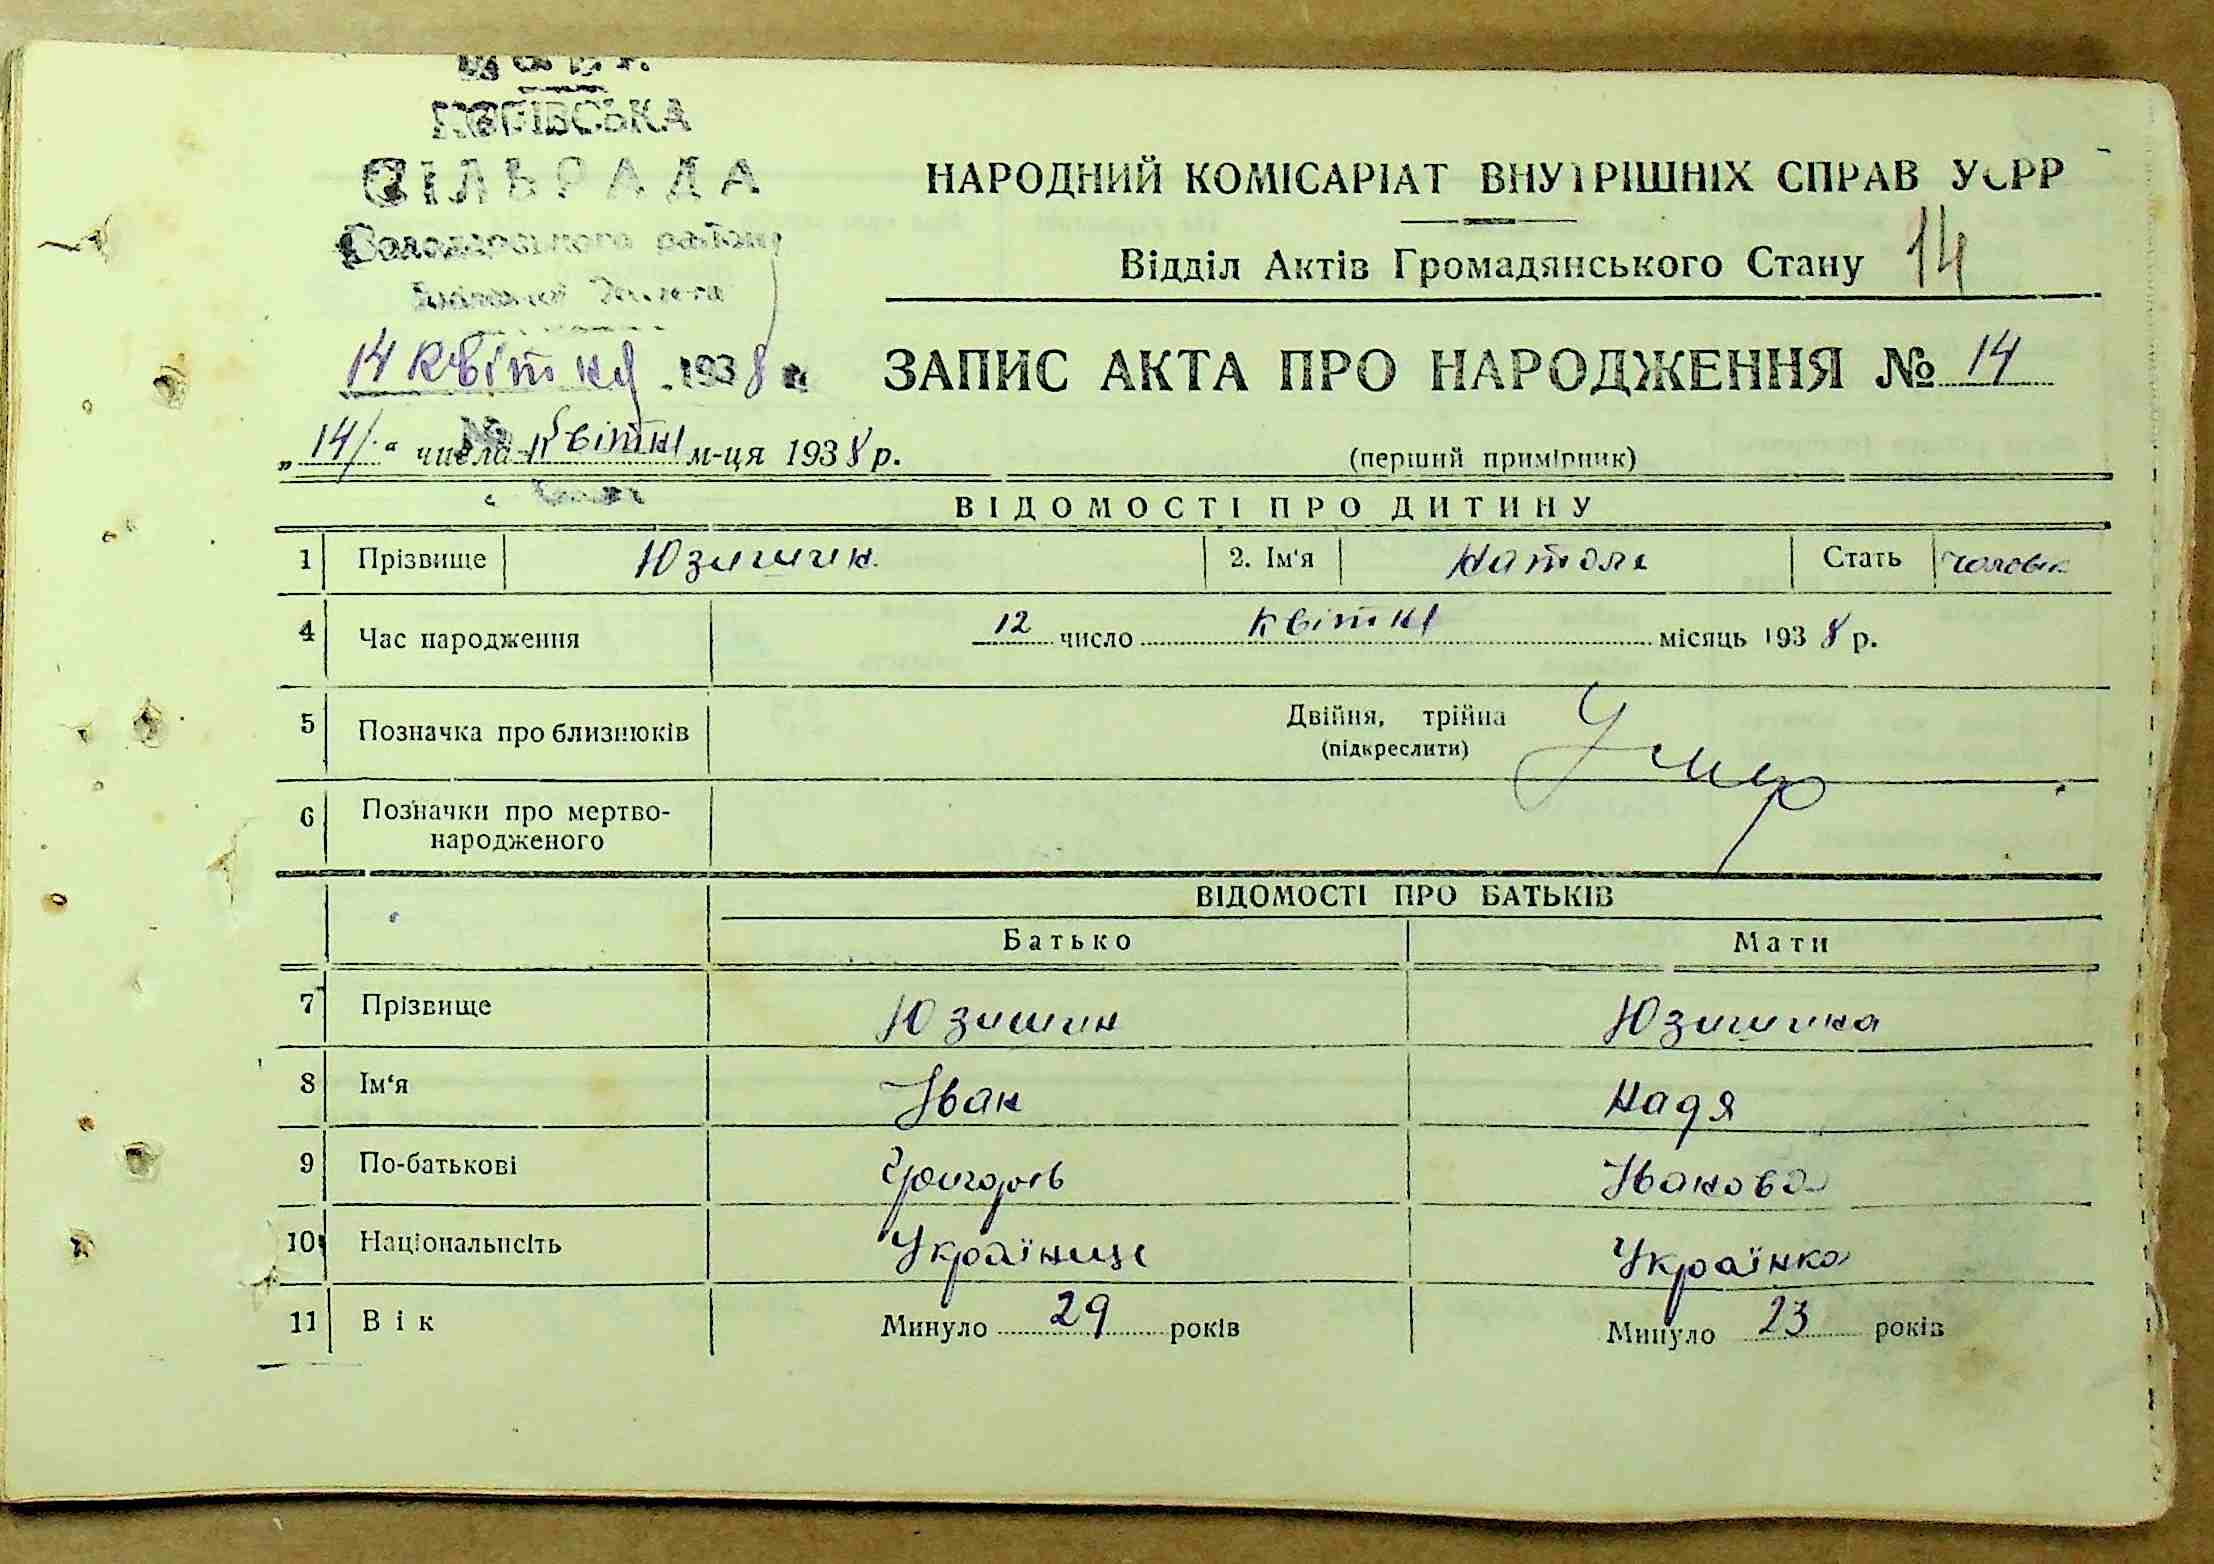 СІЛЬРАДА
Володарського району
НАРОДНИЙ КОМІСАРІАТ ВНУТРІШНІХ СПРАВ УСРР
Відділ Актів Громадянського Стану 14
14 квітня 1938 р.
ЗАПИС АКТА ПРО НАРОДЖЕННЯ № 14
„14“ числа квітня м-ця 1938 р.
(перший примірник)
ВІДОМОСТІ ПРО ДИТИНУ
1 Прізвище Юзишин 2. Ім'я Натоля Стать чоловік
4 Час народження 12 число квітня місяць 1938 р.
5 Позначка про близнюків Двійня, трійня
(підкреслити)
Умер
6 Позначки про мертво-
народженого
ВІДОМОСТІ ПРО БАТЬКІВ
Батько Мати
7 Прізвище Юзишин Юзишина
8 Ім'я Іван Надя
9 По-батькові Григоров Іванова
10 Національність Українець Українка
11 Вік Минуло 29 років Минуло 23 років